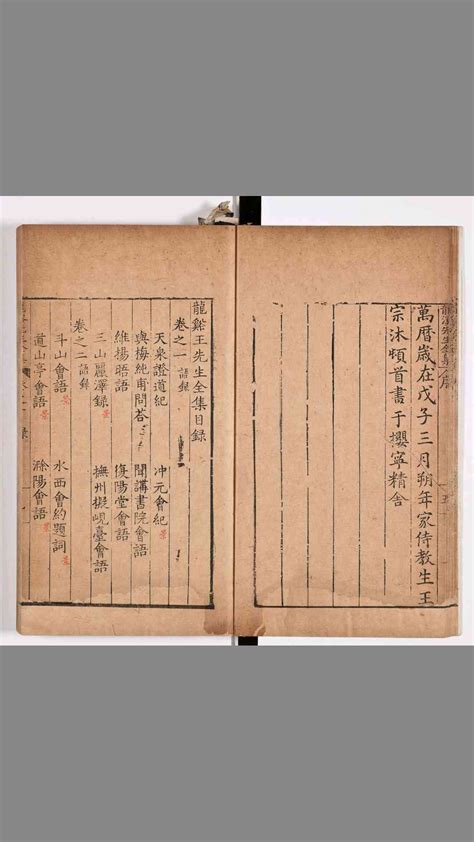 萬暦歲在戊子三月朔年家侍教生王
宗沐頓首書于櫻寧精舍
龍谿王先生全集目錄
卷之一 語錄
天泉證道紀 冲元會紀
與梅純甫問答 聞講書院會語
維揚晤語 復陽堂會語
三山麗澤錄 撫州擬峴臺會語
卷之二 語錄
斗山會語 水西會約題詞
道山亭會語 滁陽會語